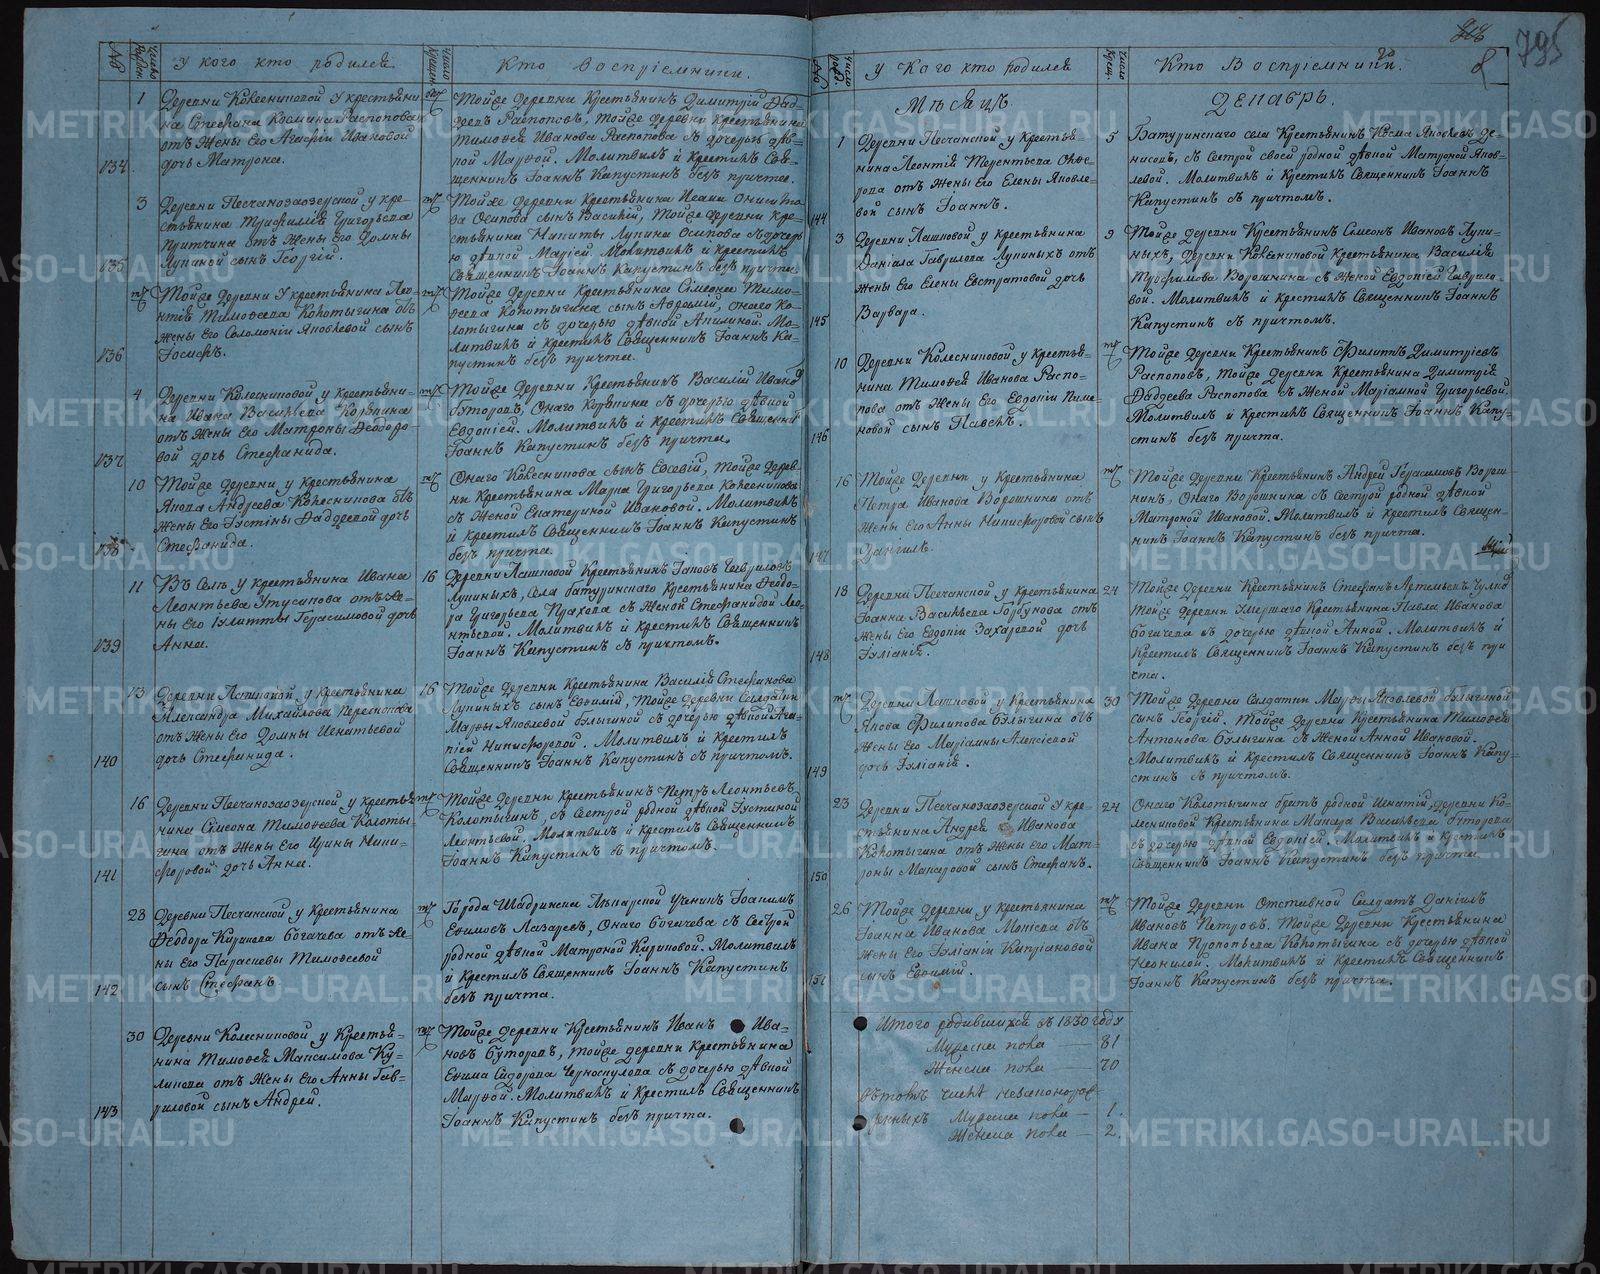 № Число Рожден. У кого кто родился Число Крещен. Кто воспрiемники.
1
Деревни Колесниковой у крестьяни
на Стефана Козмина Распопова
отъ Жены его Агафiи Ивановой
134 дочь Матрона.
Тойже деревни Крестьянинъ Димитрiй Фад-
деевъ Распоповъ, тойже деревни Крестьянина
Тимофея Иванова Распопова съ дочерью дѣв-
кой Марѳой. Молитвилъ и Крестилъ Свя-
щенникъ Iоаннъ Капустинъ безъ причта.
3 Деревни Песчанозаозерской у кре-
стьянина Трифиллiя Григорьева
Притчина отъ Жены его Домны
135 Лукиной сынъ Георгiй.
Тойже деревни Крестьянина
Осипова сынъ Василiй, тойже деревни кре-
стьянина Никиты Лукина Осипова съ дочерь
ю дѣвкой Марiей. Молитвилъ и крестилъ
Священникъ Iоаннъ Капустинъ безъ причта.
Тойже деревни У крестьянина Лео-
нтiя Тимофеева Колотыгина отъ
жены Его Соломонiи Яковлевой сынъ
136 Iосифъ.
Тойже деревни Крестьянина Симеона Тимо-
феева Колотыгина сынъ Авраамiй, онаго Ко-
лотыгина съ дочерью дѣвкой Акилиной. Мо-
литвилъ и крестилъ Священникъ Iоаннъ Ка-
пустинъ безъ причта.
4 Деревни Колесниковой у Крестьяни-
на Ивана Васильева Корякина
отъ Жены Его Матроны Ѳеодоро-
137 вой дочь Стефанида.
Тойже Деревни Крестьянинъ Василiй Ивановъ
Буторовъ, Онаго Корякина съ дочерью дѣвкой
Евдокiей. Молитвилъ и крестилъ Священни
Iоаннъ Капустинъ безъ причта.
10 Тойже деревни у крестьянина
Якова Андреева Колесникова отъ
Жены Его Iустины Фаддеевой дочь
138 Стефанида.
Онаго Колесникова сынъ Евсевiй, тойже дерев-
ни крестьянина Марка Григорьева Колесникова
съ Женой Екатериной Ивановой. Молитвилъ
и крестилъ Священникъ Iоаннъ Капустинъ
безъ причта.
11 Въ Селѣ у крестьянина Ивана
Леонтьева Утусикова отъ Же-
ны Его Iулитты Герасимовой дочь
139 Анна.
16 Деревни Лашковой Крестьянинъ Iаковъ Гавриловъ
Лукиныхъ, села батуринскаго Крестьянина Ѳеодо-
ра Григорьева Прахова съ Женой Стефанидой Лео-
нтьевой. Молитвилъ и крестилъ Священникъ
Iоаннъ Капустинъ съ причтомъ.
13 Деревни Лашковой у крестьянина
Александра Михайлова Пересыпова
отъ Жены Его Домны Игнатьевой
140 дочь Стефанида.
16 Тойже деревни Крестьянина Василiй Стефанова
Лукиныхъ сынъ Евѳимiй, Тойже деревни Солдатки
Марѳы Яковлевой Булыгиной съ дочерью дѣвкой Ага-
пiей Никифоровой. Молитвилъ и Крестилъ
Священникъ Iоаннъ Капустинъ съ причтомъ.
16 Деревни Песчанозаозерской у крестья-
нина Симеона Тимофеева Колоты-
гина отъ Жены Его Ирины Ники-
141 форовой дочь Анна.
Тойже деревни крестьянинъ Петръ Леонтьевъ
Колотыгинъ, съ сестрой родной дѣвкой Iустиной
Леонтьевой. Молитвилъ и крестилъ Священникъ
Iоаннъ Капустинъ съ причтомъ.
28 Деревни Песчанской у Крестьянина
Ѳеодора Кирилова Богачева отъ Же-
ны Его Параскевы Тимофеевой
142 сынъ Стефанъ
Города Шадринска Лекарской ученикъ Iоакимъ
Евимовъ Лазаревъ, Онаго Богачева съ Сестрой
родной дѣвкой Матроной Кириловой. Молитвилъ
и крестилъ Священникъ Iоаннъ Капустинъ
безъ причта.
30 Деревни Колесниковой у Крестья-
нина Тимофея Максимова Ку-
ликова отъ Жены Его Анны Гав-
143 риловой сынъ Андрей.
Тойже деревни Крестьянинъ Иванъ Ива-
новъ Буторовъ, тойже деревни крестьянина
Екима Сидорова Черноскулова съ дочерью дѣвкой
Марѳой. Молитвилъ и Крестилъ Священникъ
Iоаннъ Капустинъ безъ причта.
795
Число рожд. У Кого кто родился Число Крещ. Кто Воспрiемники.
Мѣсяцъ Декабрь.
1 Деревни Песчанской у Крестья-
нина Леонтiя Терентьева
отъ Жены Его Елены Яковле-
144 вой сынъ Iоаннъ.
5 Батуринскаго села Крестьянинъ Козма Яковлевъ Де-
нисовъ, съ сестрой своей родной дѣвкой Матроной Яков-
левой. Молитвилъ и крестилъ Священникъ Iоаннъ
Капустинъ съ причтомъ.
3 Деревни Лашковой у крестьянина
Данiила Гаврилова Лукиныхъ отъ
Жены Его Елены Евстратовой дочь
145 Варвара.
9 Тойже деревни Крестьянинъ Симеонъ Ивановъ Луки-
ныхъ, деревни Колесниковой Крестьянина Василiя
Трофимова Ворошнина съ Женой Евдокiей Гаврило-
вой. Молитвилъ и крестилъ Священникъ Iоаннъ
Капустинъ съ причтомъ.
10 Деревни Колесниковой у Крестья-
нина Тимофея Иванова Распо-
пова отъ жены Его Евдокiи Яким-
146 новой сынъ Павелъ.
Тойже деревни Крестьянинъ Филиппъ Димитрiевъ
Распоповъ, тойже деревни Крестьянина Димитрiя
Фаддеева Распопова съ Женой Марiамной Григорьевой.
Молитвилъ и крестилъ Священникъ Iоаннъ Капу-
стинъ безъ причта.
16 Тойже Деревни у Крестьянина
Петра Иванова Ворошнина отъ
Жены Его Анны Никифоровой сынъ
147 Данiилъ.
Тойже деревни Крестьянинъ Андрей Герасимовъ Ворош-
нинъ, Онаго Ворошнина съ Сестрой родной дѣвкой
Матроной Ивановой. Молитвилъ и крестилъ Священ-
никъ Iоаннъ Капустинъ безъ причта.
18 Деревни Песчанской у крестьянина
Iоанна Васильева Горбунова отъ
Жены Его Евдокiи Захаровой дочь
148 Iулiанiя.
24 Тойже Деревни Крестьянинъ Стефанъ Артемьевъ
тойже деревни умершаго Крестьянина Павла Иванова
Богачева съ дочерью дѣвкой Анной. Молитвилъ и
крестилъ Священникъ Iоаннъ Капустинъ безъ при
чта.
Деревни Лашковой у Крестьянина
Якова Филипова Булыгина отъ
Жены Его Марiамны Алексiевой
149 дочь Iулiанiя.
30 Тойже Деревни Солдатки Марѳы Яковлевой Булыгиной
сынъ Георгiй. Тойже деревни Крестьянина Тимофея
Антонова Булыгина съ Женой Анной Ивановой.
Молитвилъ и крестилъ Священникъ Iоаннъ Капу-
стинъ съ причтомъ.
23 Деревни Песчанозаозерской у кре-
стьянина Андрея Иванова
Колотыгина отъ Жены Его Мат-
150 роны Макаровой сынъ Стефанъ.
24 Онаго Колотыгина братъ родной Игнатiй, деревни Ко-
лесниковой Крестьянина Макара Васильева Буторова
съ дочерью дѣвкой Евдокiей. Молитвилъ и крестилъ
Священникъ Iоаннъ Капустинъ безъ причта.
26 Тойже деревни у крестьянина
Iоанна Иванова Моисева отъ
Жены Его Iулiанiи Капрiановой
151 сынъ Евѳимiй.
Тойже деревни Отставной Солдатъ Данiилъ
Ивановъ Петровъ. Тойже деревни Крестьянина
Ивана Прокопьева Колотыгина съ дочерью дѣвкой
Неонилой. Молитвилъ и крестилъ Священникъ
Iоаннъ Капустинъ безъ причта.
Итого родившихся въ 1830 году
Мужеска пола — 81
Женска пола — 70
Въ томъ числѣ незаконорож-
денныхъ Мужеска пола — 1.
Женска пола — 2.
METRIKI.GASO-URAL.RU